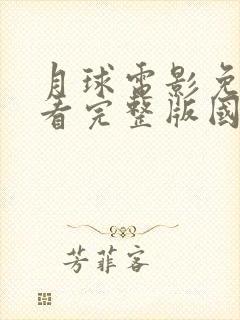 月球電影免
看完整版國
芳菲客